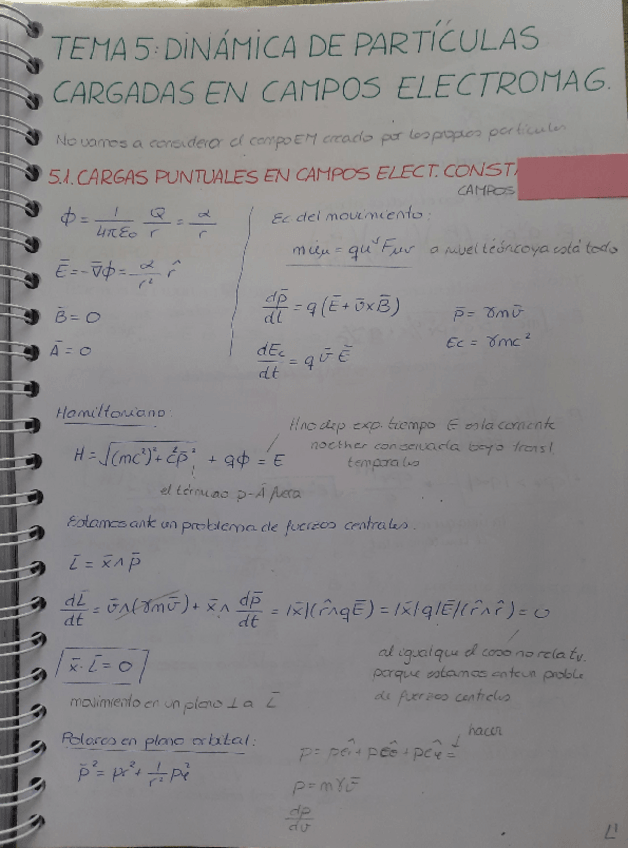 TEMA 5: DINÁMICA DE PARTÍCULAS
CARGADAS EN CAMPOS ELECTROMAG.
No vamos a considerar el campo EM creado por las propias partículas
5.1. CARGAS PUNTUALES EN CAMPOS ELECT. CONST
CAMPOS
Φ = 1/4πε₀ Q/r = α/r
E̅ = -∇̅Φ = α/r² r̂
B̅ = 0
A̅ = 0
Ec del movimiento:
mu̇μ = quᵛFμν a nivel teórico ya está todo
dp̅/dt = q(E̅ + v̅ x B̅) p̅ = γmv̅
dEc/dt = q v̅ E̅ Ec = γmc²
Hamiltoniano:
H = √((mc²)² + c²p̅²) + qΦ = E
H no dep exp. tiempo E es la corriente
noether conservada bajo transl.
temporales
el término p-A̅ fuera
Estamos ante un problema de fuerzas centrales.
L̅ = x̅ ∧ p̅
dL̅/dt = v̅ ∧ (γmv̅) + x̅ ∧ dp̅/dt = |x̅|(r̂ ∧ qE̅) = |x̅|q|E̅|(r̂ ∧ r̂) = 0
x̅ · L̅ = 0
al igual que el caso no relatv.
porque estamos ante un proble
de fuerzas centrales
movimiento en un plano ⊥ a L̅
Polares en plano orbital:
hacer
p̅² = pr² + 1/r² pφ²
p = mγv̅
dp/dv